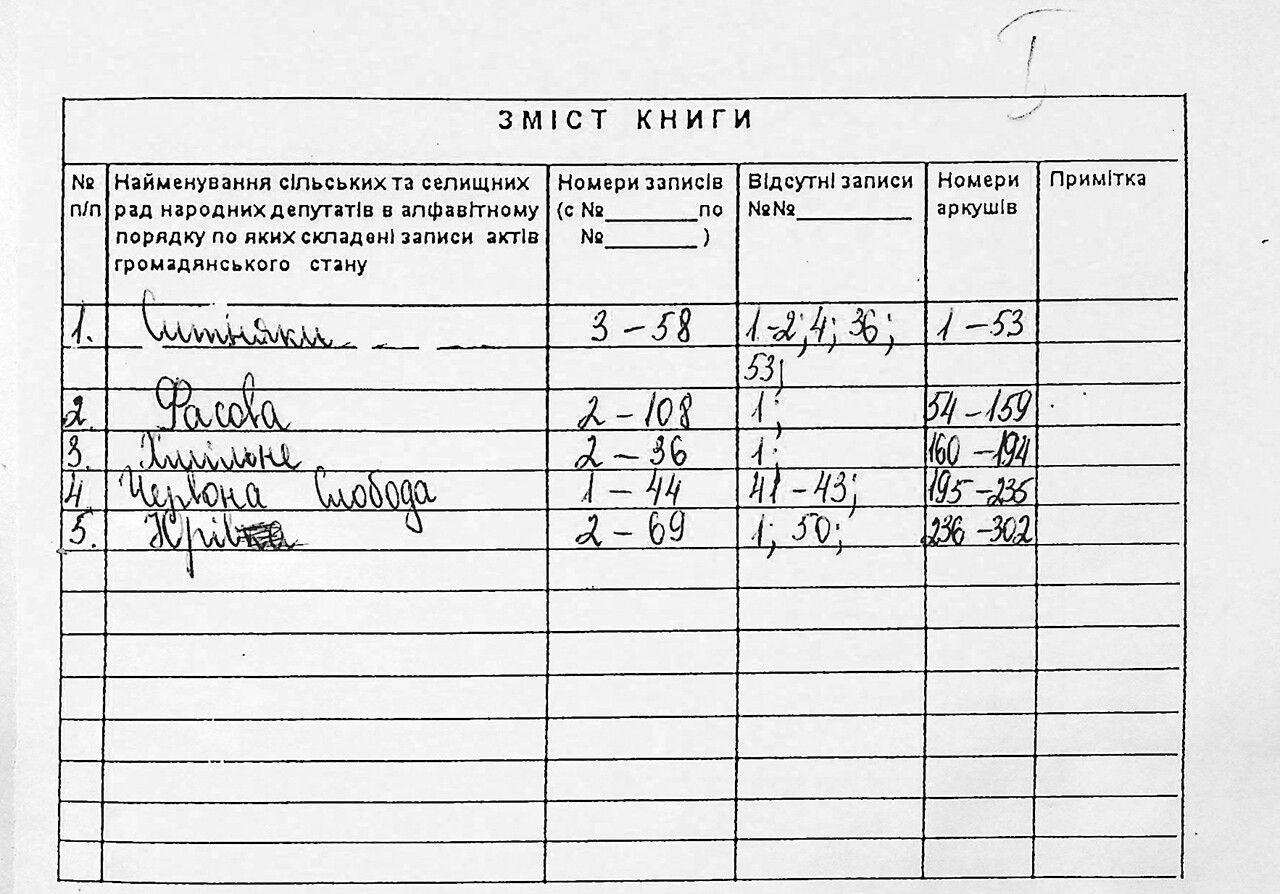 I
ЗМІСТ КНИГИ
№ п/п
Найменування сільських та селищних
рад народних депутатів в алфавітному
порядку по яких складені записи актів
громадянського стану
Номери записів
(с №________по
№________ )
Відсутні записи
№№__________
Номери
аркушів
Примітка
1. Ситняки 3 – 58 1-2; 4; 36; 1 – 53
53;
2. Фасова 2 – 108 1; 54 – 159
3. Хмільне 2 – 36 1; 160 – 194
4 Червона Слобода 1 – 44 41 – 43; 195 – 235
5. Юрів 2 – 69 1; 50; 236 – 302